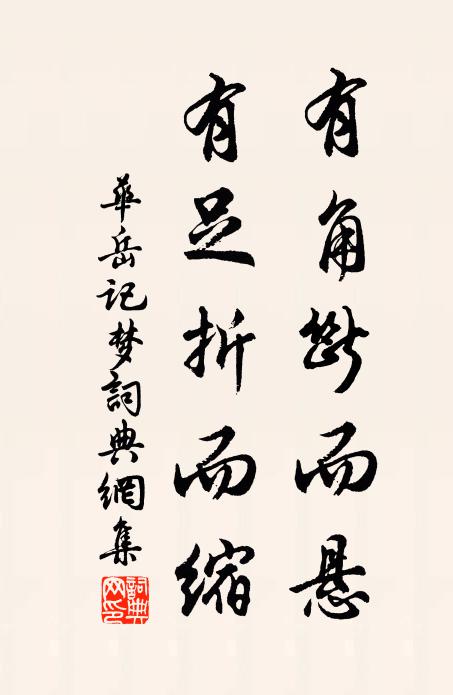 有角斷而悬
有足折而缩
華岳记梦詞典網集
詞典網印